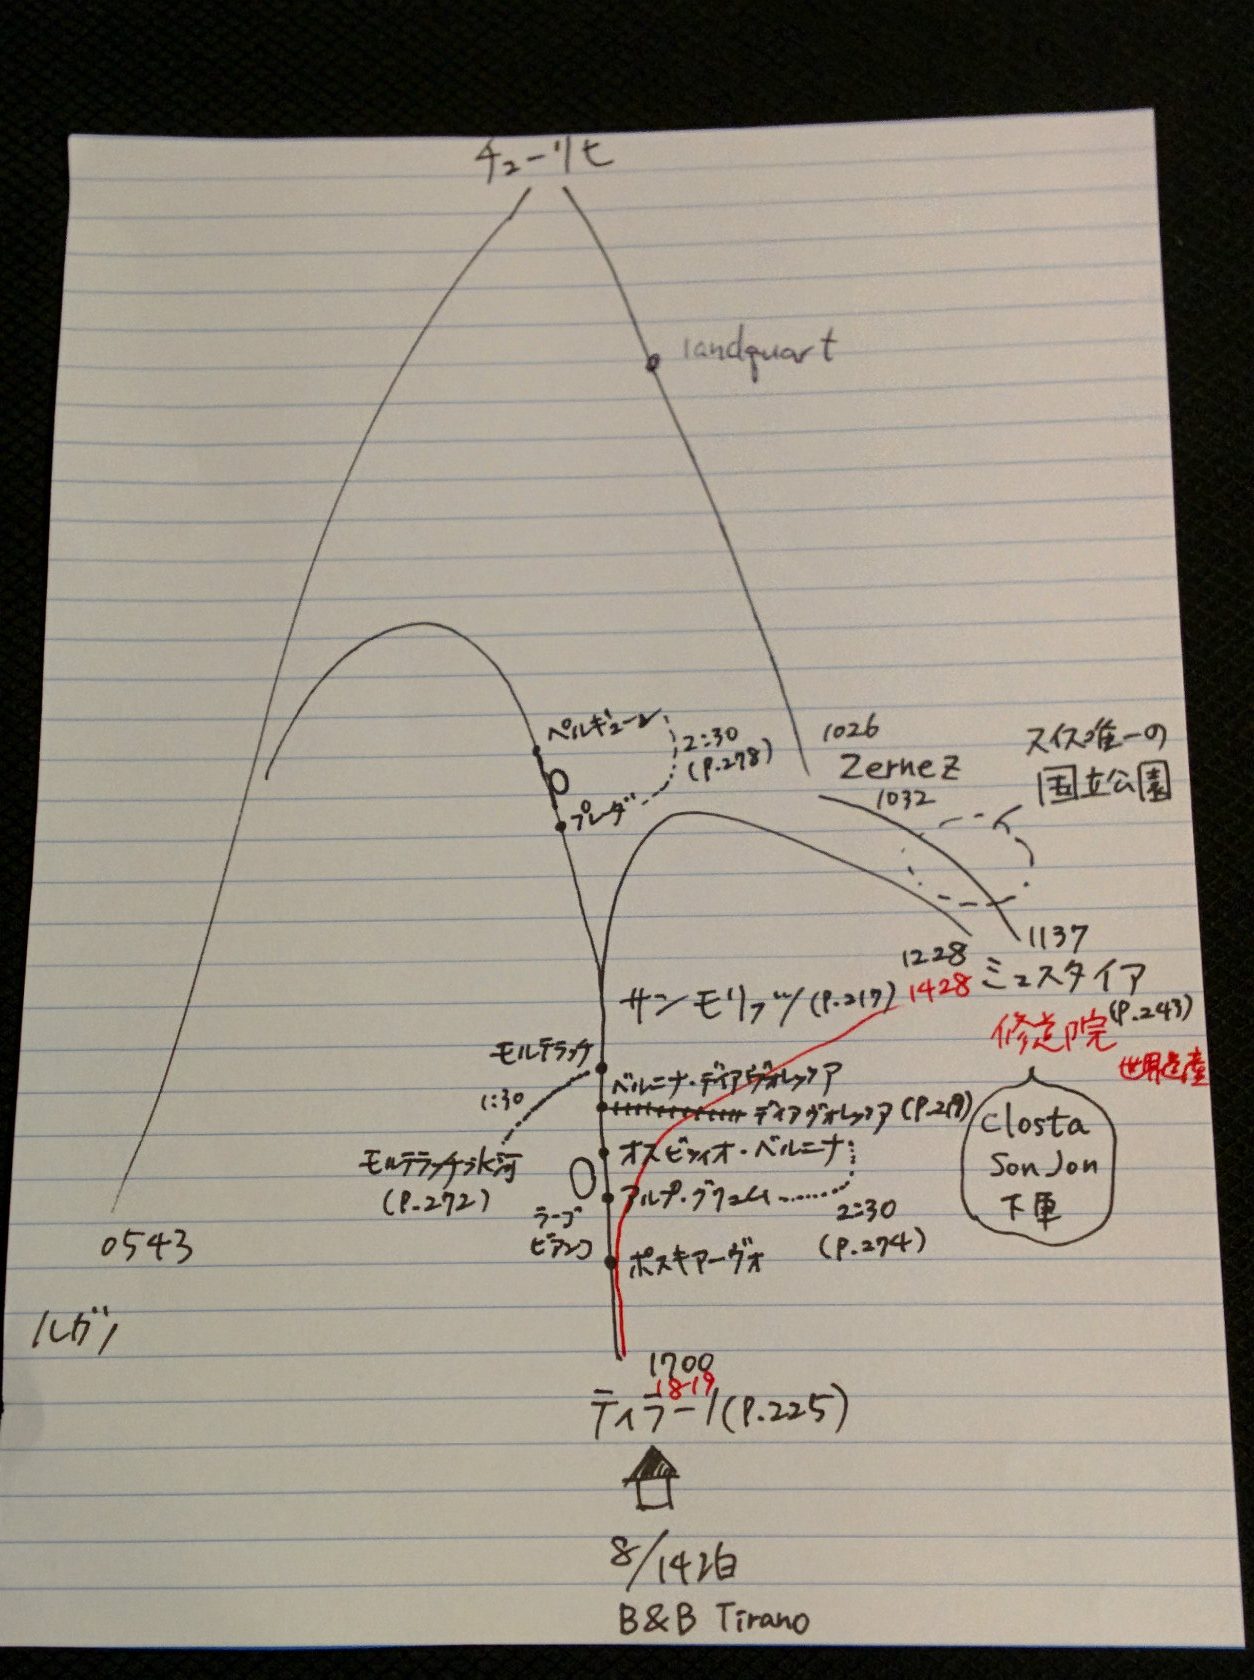 チューリヒ
landquart
ベルギューン
2:30
(P.278)
プレダ
1026
Zernez
1032
スイス唯一の
国立公園
1137
1228
1428
ミュスタイア
(P.243)
修道院
世界遺産
Closta
Son Jon
下車
サンモリッツ(P.217)
モルテラッチ
1:30
モルテラッチ氷河
(P.272)
ベルニナ・ディアヴォレッツァ
ディアヴォレッツァ(P.219)
オスピツィオ・ベルニナ
アルプ・グリュム
2:30
(P.274)
ラーゴ
ビアンコ
ポスキアーヴォ
0543
ルガノ
1700
1819
ティラーノ(P.225)
8/14泊
B&B Tirano